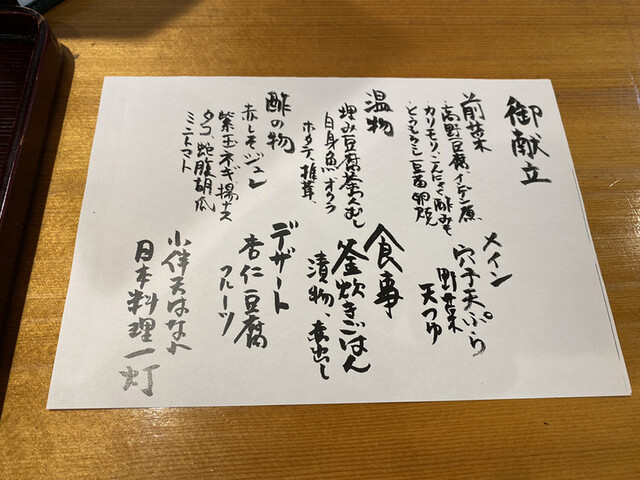 御献立
前菜
高野豆腐、インゲン煮
カリモリ、こんにゃく酢みそ
とうもろこし豆富卵焼
温物
埋み豆腐茶わんむし
白身魚、オクラ
ホタテ、椎茸
酢の物
赤しそジュレ
紫玉ネギ、揚ナス
タコ、蛇腹胡瓜
ミニトマト
メイン
穴子天ぷら
野菜
天つゆ
食事
釜炊きごはん
漬物、赤出し
デザート
杏仁豆腐
フルーツ
小伴天はなれ
日本料理一灯